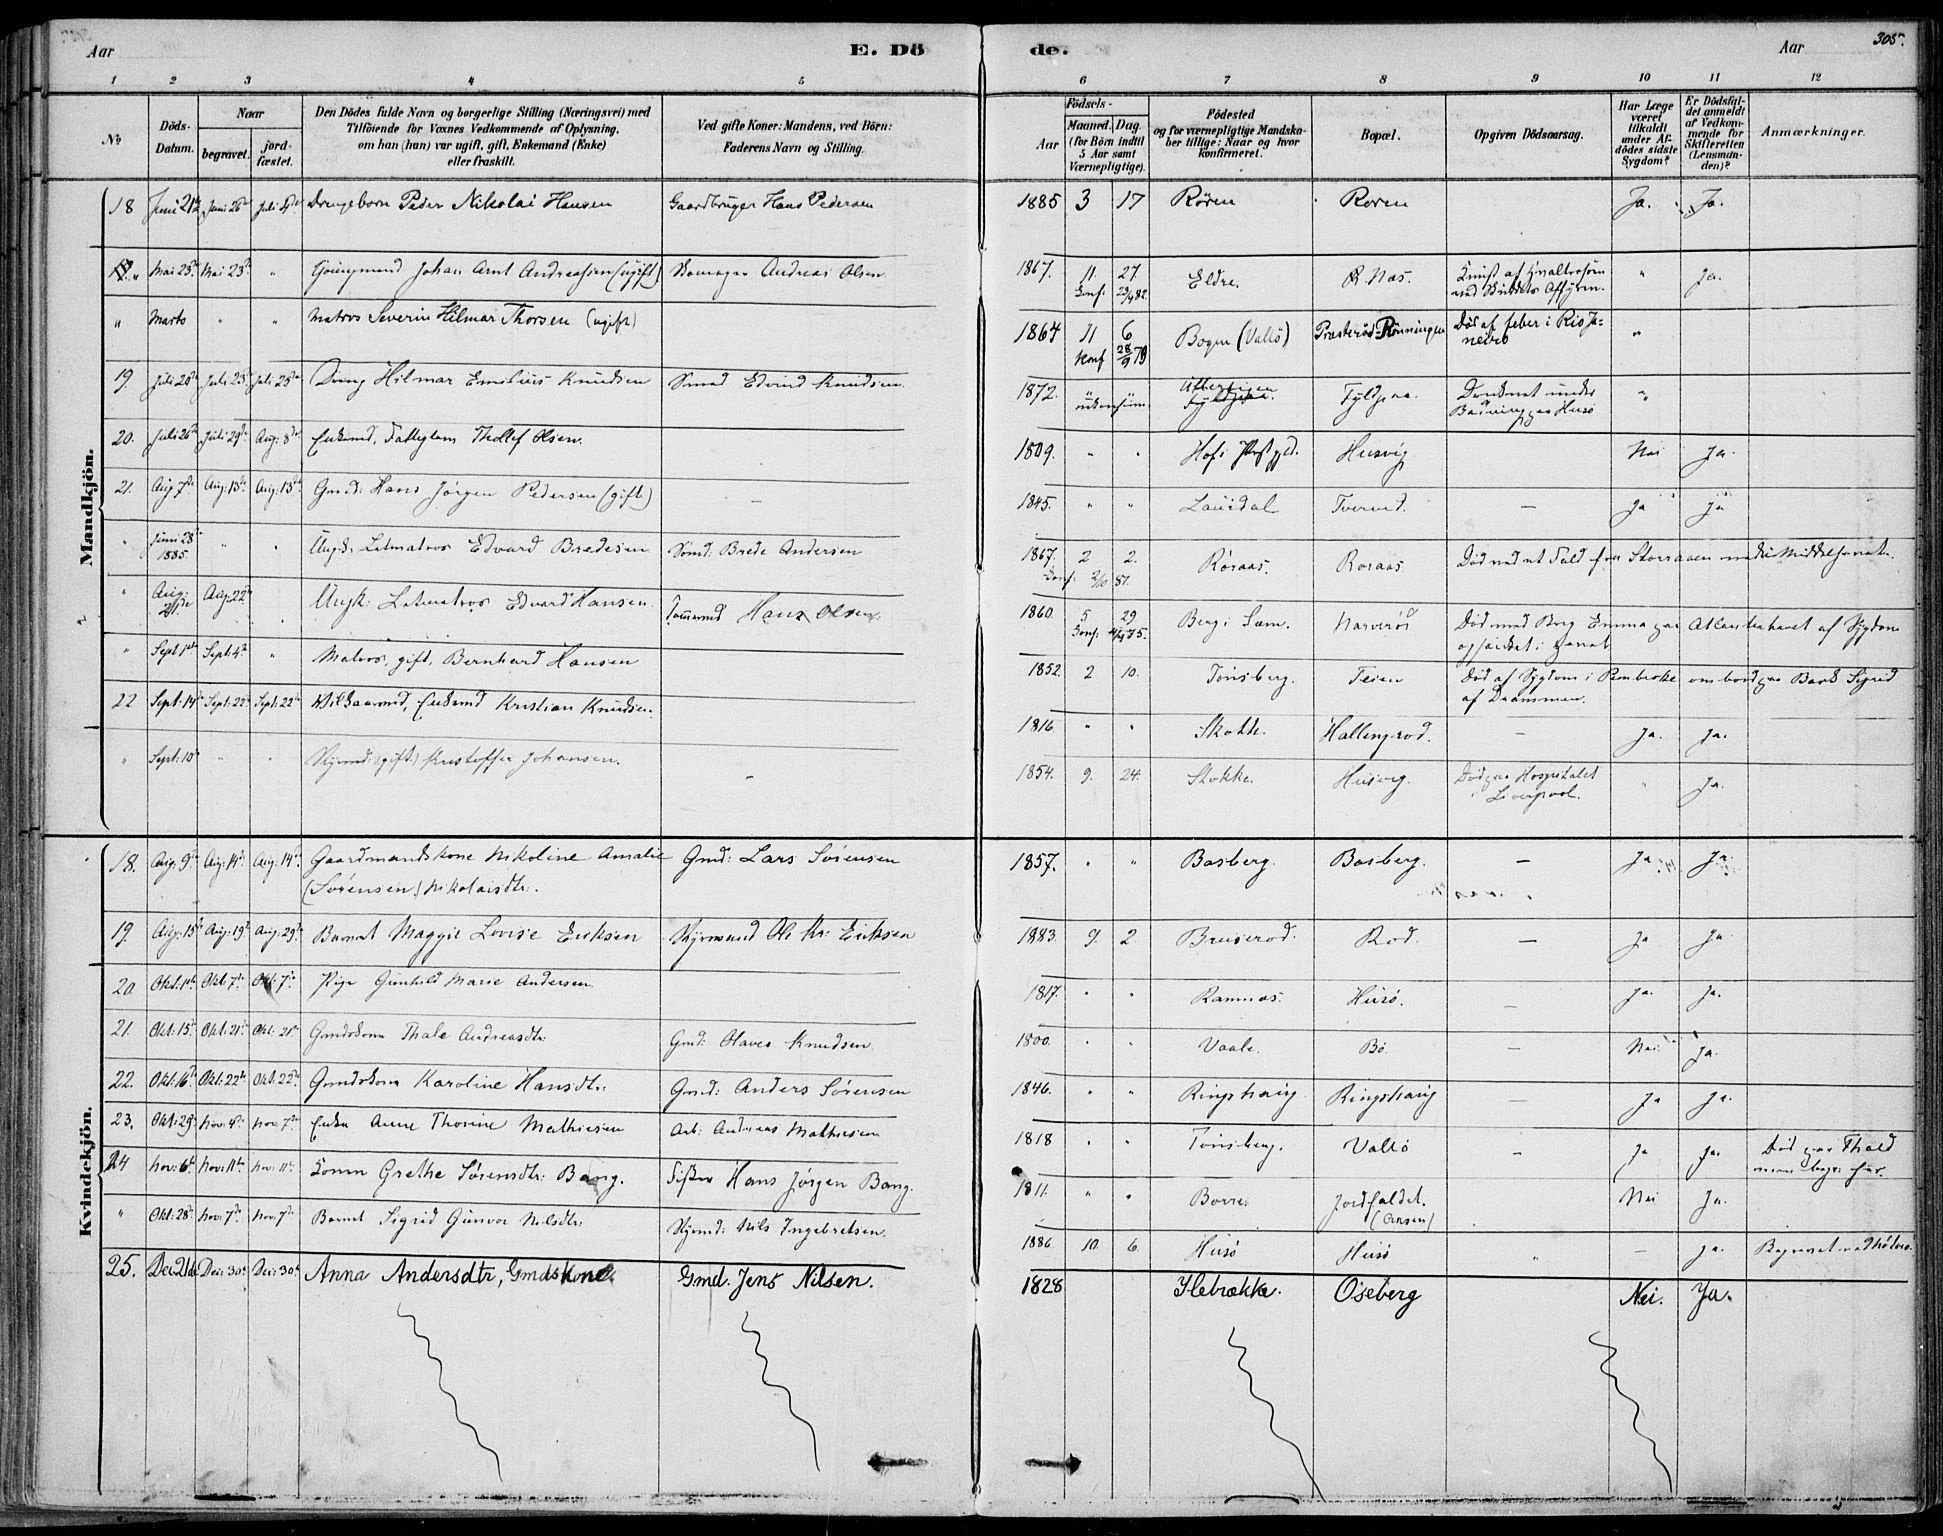 Aar E. Dö de. Aar 305.
1 2 3 4 5 6 7 8 9 10 11 12
No
Döds-Datum.
Naar
begravet.
jord-fæstet.
Den Dödes fulde Navn og borgerlige Stilling (Næringsvei) med
Tilföiende for Voxnes Vedkommende af Oplysning,
om han (hun) var ugift, gift, Enkemand (Enke)
eller fraskilt.
Ved gifte Koner: Mandens, ved Börn:
Faderens Navn og Stilling.
Födsels-
Aar
Maaned. Dag.
(for Börn indtil
5 Aar samt
Værnepligtige).
Födested
og for værnepligtige Mandska-
ber tillige: Naar og hvor
konfirmeret.
Bopæl.
Opgiven Dödsaarsag.
Har Læge
været
tilkaldt
under Af-
dödes sidste
Sygdom?
Er Dödsfal-
det anmeldt
af Vedkom-
mende for
Skifteretten
(Lensman-
den)?
Anmærkninger.
Mandkjön.
18 Juni 21de Juni 26de Juli 4de Drengebarn Peder Nikolai Hansen Gaardbruger Hans Pedersen 1885 3 17 Røren Roren Ja. Ja.
" Mai 23de Mai 23de " Johan Arnt Andreassen (ugift) Andreas Olsen 1867. 11. 27. Eldre. R. Næs. " Ja.
Konf: 23/4 82.
" Marts " " Matros Severin Hilmar Thorsen (ugift) 1864 11 6 Bogen (Vallö) Præsterød-Rønningen Död af feber i Rio Ja=
neiro "
Konf 28/9 79
19. Juli 20de Juli 25de Juli 25de Dreng Hilmar Emelius Knudsen Smed Edvind Knudsen. 1872. " Fyldpaa. Druknet under
Badning paa Husø "
20. Juli 26de Juli 29de Aug: 8de Enkemd, Fattiglem Thollef Olsen. 1809. " " Hof Præstgjd. Husvig. Nei Ja.
21. Aug 7de Aug: 13de Aug: 13de Gmd: Hans Jørgen Pedersen (gift) — 1845. " " Lauvdal Tverved. — Ja Ja
" Juni 28de
1885. " " Ungk. Letmatros Edvard Bredesen Sømd: Brede Andersen 1867. 2 2. Röraas. Roraas. Död ved et Fald fra Storraaen nede i Middelhavet.
Konf: 2/10 81.
" Aug:
21de Aug: 22de " Ungk: Letmatros Edvard Hansen Tømmermd Hans Olsen. 1860. 5 29 Berg i Sem. Narverød Død med Brig Emma paa Atlanterhavet af Sygdom
Konf: 75. og sænket i Havet
" Sept 1ste Sept: 4de " Matros, gift, Bernhard Hansen 1852. 2 10. Tönsberg. Teien Död af Sygdom i Pembroke ombord paa Bark Sigrid
af Drammen.
22 Sept: 14de Sept: 22de Sept: 22de Enkemd Kristian Knudsen. 1816 " " Stokke. Hallingrod. — Ja. Ja.
" Sept: 10de " " Styrmd: (gift) Kristoffer Johansen. — 1854. 9. 24. Stokke. Husvig. Död paa Hospitalet
i Liverpool. " Ja.
Kvindekjön.
18. Aug: 9de Aug: 14de Aug: 14de Gaardmandskone Nikoline Amalie
(Sörensen) Nikolaisdtr. Gmd: Lars Sörensen 1857. " " Basberg. Basberg. — Ja Ja
19. Aug: 15de Aug: 19de Aug: 29de Barnet Maggie Lovise Eriksen Styrmand Ole Kr: Eriksen 1883. 9. 2. Bruserod. Rod. — Ja Ja
20 Okt: 1ste Okt: 7de Okt: 7de Pige Gunhild Marie Andersen. 1817. " " Ramnæs. Husö. — Ja. Ja.
21. Okt: 15de Okt: 21de Okt: 21de Gmdskone Thale Andreasdtr. Gmd: Olaves Knudsen. 1800. " " Vaale. Bö. — Nei. Ja.
22. Okt: 16de Okt: 22de Okt: 22de Gmdskone Karoline Hansdtr. Gmd: Anders Sörensen 1846. " " Ringshaug Ringshaug — Ja Ja.
23. Okt: 29de Nov: 4de Nov: 7de Enke Anne Thorine Mathiesen Arb: Andreas Mathiesen 1818 " " Tönsberg. Vallö — Ja Ja. Död paa Thold
men begr: her.
24 Nov: 6te Nov: 11te Nov: 11te Konen Grethe Sörensdtr: Bang. Fisker Hans Jørgen Bang. 1811. " " Borre. Jordfaldet.
(Ansen) Nei Ja.
" Okt: 28de Nov: 7de Nov: 7de Barnet Sigrid Gunvor Nilsdtr: Styrmd: Nils Ingebretsen. 1886. 10. 6. Husö Husö " — Ja.
25. Dec: 21de Dec: 30te Dec: 30te Anna Andersdtr, Gmdskone Gmd. Jens Nilsen. 1828 Ilebrække. Oseberg Nei. Ja.